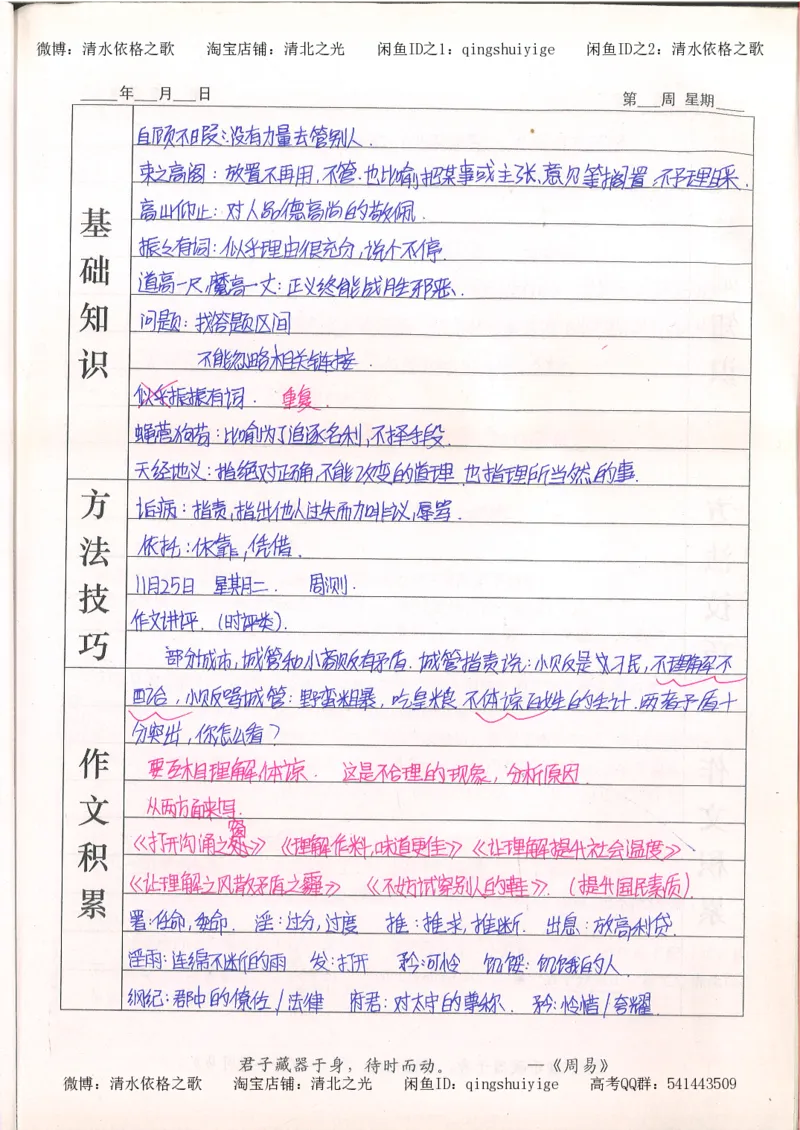 微博：清水依格之歌 淘宝店铺：清北之光 闲鱼ID之1：qingshuiyige 闲鱼ID之2：清水依格之歌
____年___月___日 第___周 星期____
基础知识
自顾不暇：没有力量去管别人.
束之高阁：放置不再用,不管.也比喻把某事或主张、意见等搁置,不予理睬.
高山仰止：对人品德高尚的敬佩.
振々有词：似乎理由很充分,说个不停.
道高一尺,魔高一丈：正义终能战胜邪恶.
问题：找答题区间
不能忽略相关链接.
似乎振振有词. 重复.
蝇营狗苟：比喻为了追逐名利,不择手段.
天经地义：指绝对正确,不能改变的道理,也指理所当然的事.
方法技巧
诟病：指责,指出他人过失而加非议,辱骂.
依托：依靠,凭借.
11月25日 星期二. 周测.
作文讲评.（时评类）.
作文积累
部分城市,城管和小商贩有矛盾.城管指责说：小贩是刁民,不理解不
配合,小贩骂城管：野蛮粗暴,吃皇粮,不体谅百姓的生计.两者矛盾十
分突出,你怎么看?
要互相理解体谅. 这是不合理的现象,分析原因.
从两方面来写.
《打开沟通之窗》《理解作料,味道更佳》《让理解提升社会温度》
《让理解之风散矛盾之霾》 《不妨试穿别人的鞋》.（提升国民素质）.
署：任命,委命. 淫：过分,过度 推：推求,推断. 出息：放高利贷.
淫雨：连绵不断的雨 发：打开 矜：可怜 饥馁：饥饿的人.
纲纪：郡中的僚佐/法律 府君：对太守的尊称. 矜：怜惜/夸耀.
君子藏器于身，待时而动。 —《周易》
微博：清水依格之歌 淘宝店铺：清北之光 闲鱼ID：qingshuiyige 高考QQ群：541443509